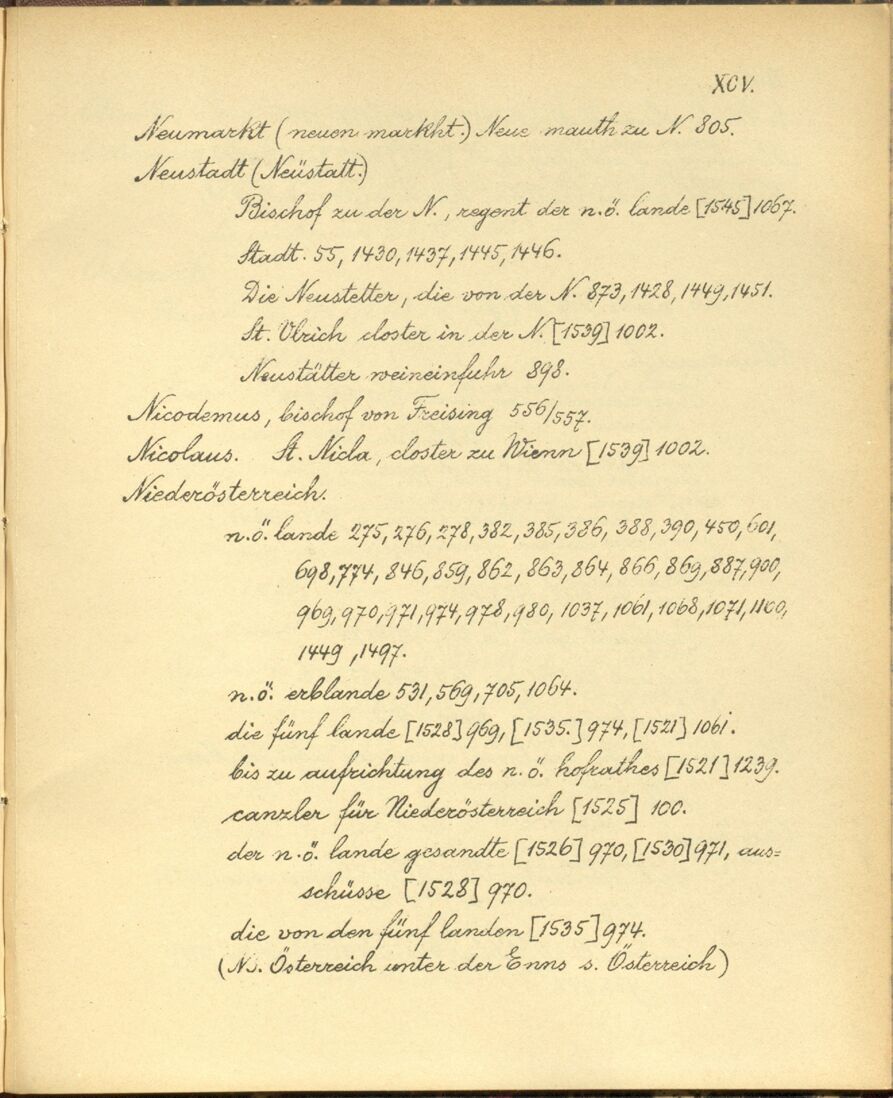 XCV.
Neumarkt (neuen markht.) Neue mauth zu N. 805.
Neustadt (Neüstatt.)
Bischof zu der N., regent der n.ö. lande [1545] 1067.
Stadt. 55, 1430, 1437, 1445, 1446.
Die Neustetter, die von der N. 873, 1428, 1449, 1451.
St. Ulrich closter in der N. [1539] 1002.
Neustätter weineinfuhr 898.
Nicodemus, bischof von Freising 556/557.
Nicolaus. St. Nicla, closter zu Wienn [1539] 1002.
Niederösterreich.
n.ö. lande 275, 276, 278, 382, 385, 386, 388, 390, 450, 601,
698, 774, 846, 859, 862, 863, 864, 866, 869, 887, 900,
969, 970, 971, 974, 978, 980, 1037, 1061, 1068, 1071, 1100,
1449, 1497.
n.ö. erblande 531, 569, 705, 1064.
die fünf lande [1528] 969, [1535.] 974, [1521] 1061.
bis zu aufrichtung des n.ö. hofrathes [1521] 1239.
canzler für Niederösterreich [1525] 100.
der n.ö. lande gesandte [1526] 970, [1530] 971, aus=
schüsse [1528] 970.
die von den fünf landen [1535] 974.
(N. Österreich unter der Enns s. Österreich)